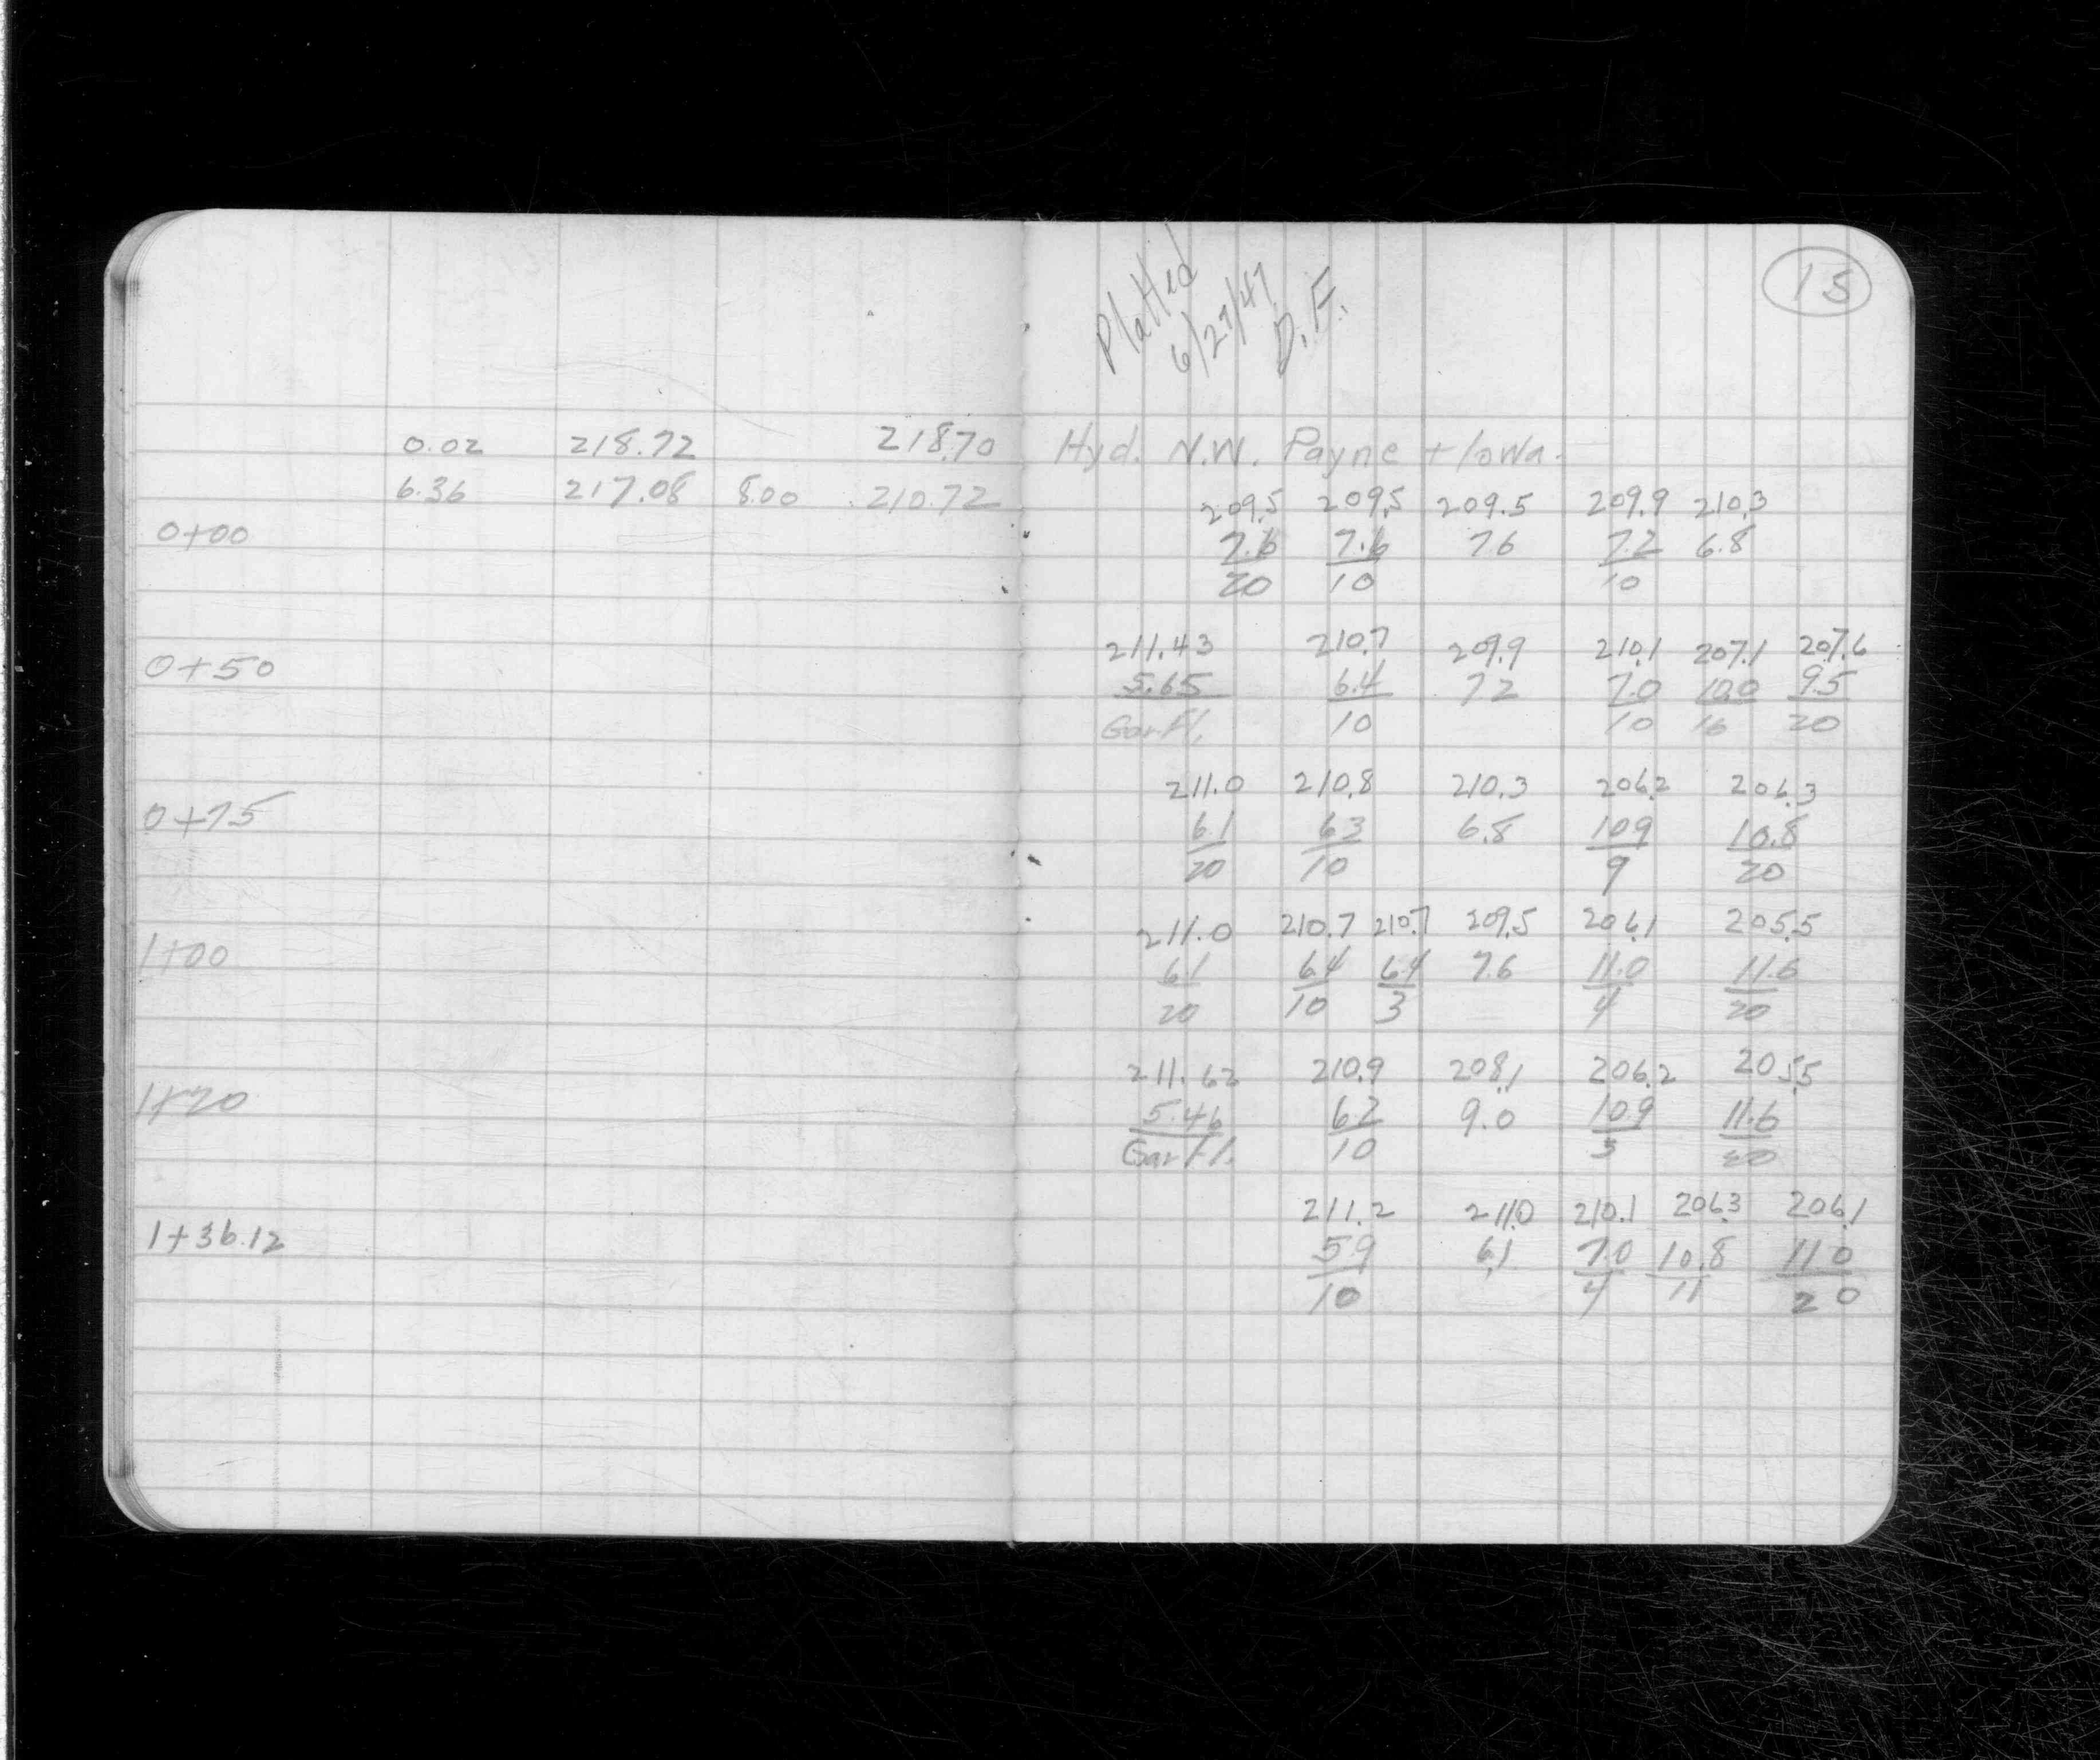 15
Platted
6/27/47
D.F.
0.02 218.72 218.70 Hyd. N.W. Payne + Iowa.
6.36 217.08 8.00 210.72
209.5 209.5 209.5 209.9 210.3
0+00 7.6 7.6 7.6 7.2 6.8
20 10 10
211.43 210.7 209.9 210.1 207.1 207.6
0+50 5.65 6.4 7.2 7.0 10.0 9.5
Gar. Fl. 10 10 16 20
211.0 210.8 210.3 206.2 206.3
0+75 6.1 6.3 6.8 10.9 10.8
20 10 9 20
211.0 210.7 210.7 209.5 206.1 205.5
1+00 6.1 6.4 6.4 7.6 11.0 11.6
20 10 3 4 20
211.62 210.9 208.1 206.2 205.5
1+20 5.46 6.2 9.0 10.9 11.6
Gar Fl. 10 5 20
211.2 211.0 210.1 206.3 206.1
1+36.12 5.9 6.1 7.0 10.8 11.0
10 4 11 20